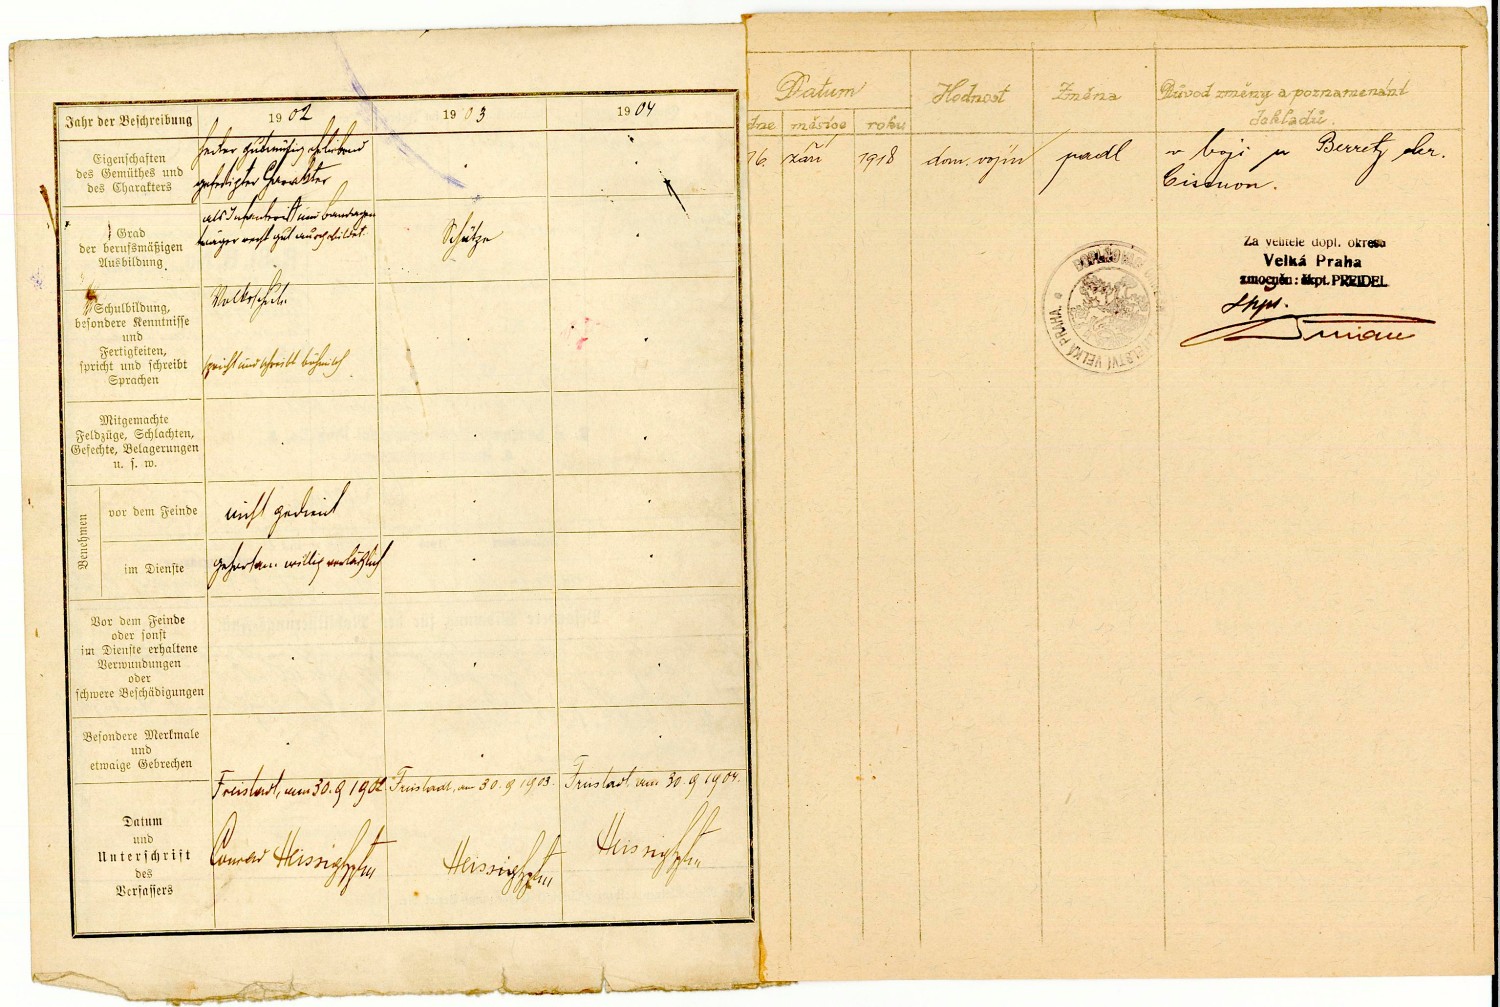 Jahr der Beschreibung
1902
1903
1904
Eigenschaften
des Gemüthes und
des Charakters
heiter gutmüthig
gefestigter Charakter
Grad
der berufsmäßigen
Ausbildung
als Infanterist und Bandagen
träger recht gut ausgebildet.
Schütze
Schulbildung,
besondere Kenntnisse
und
Fertigkeiten,
spricht und schreibt
Sprachen
Volksschule
spricht und schreibt böhmisch
Mitgemachte
Feldzüge, Schlachten,
Gefechte, Belagerungen
u. s. w.
Benehmen
vor dem Feinde
nicht gedient
im Dienste
gehorsam willig verläßlich
Vor dem Feinde
oder sonst
im Dienste erhaltene
Verwundungen
oder
schwere Beschädigungen
Besondere Merkmale
und
etwaige Gebrechen
Datum
und
Unterschrift
des
Verfassers
Freistadt, am 30.9 1902
Freistadt, am 30.9 1903.
Freistadt, am 30.9 1904.
Conrad Heissig Hptm
Heissig Hptm
Heissig Hptm
Datum
Hodnost
Změna
Důvod změny a poznamenání
dokladů.
dne
měsíce
roku
16.
září
1918
dom. vojín
padl
v boji u Berretz
Cismon.
Za velitele dopl. okresu
Velká Praha
zmocněn: škpt. PREIDEL
škpt.
DOPLŇOVACÍ
VELITELSTVÍ VELKÁ PRAHA.